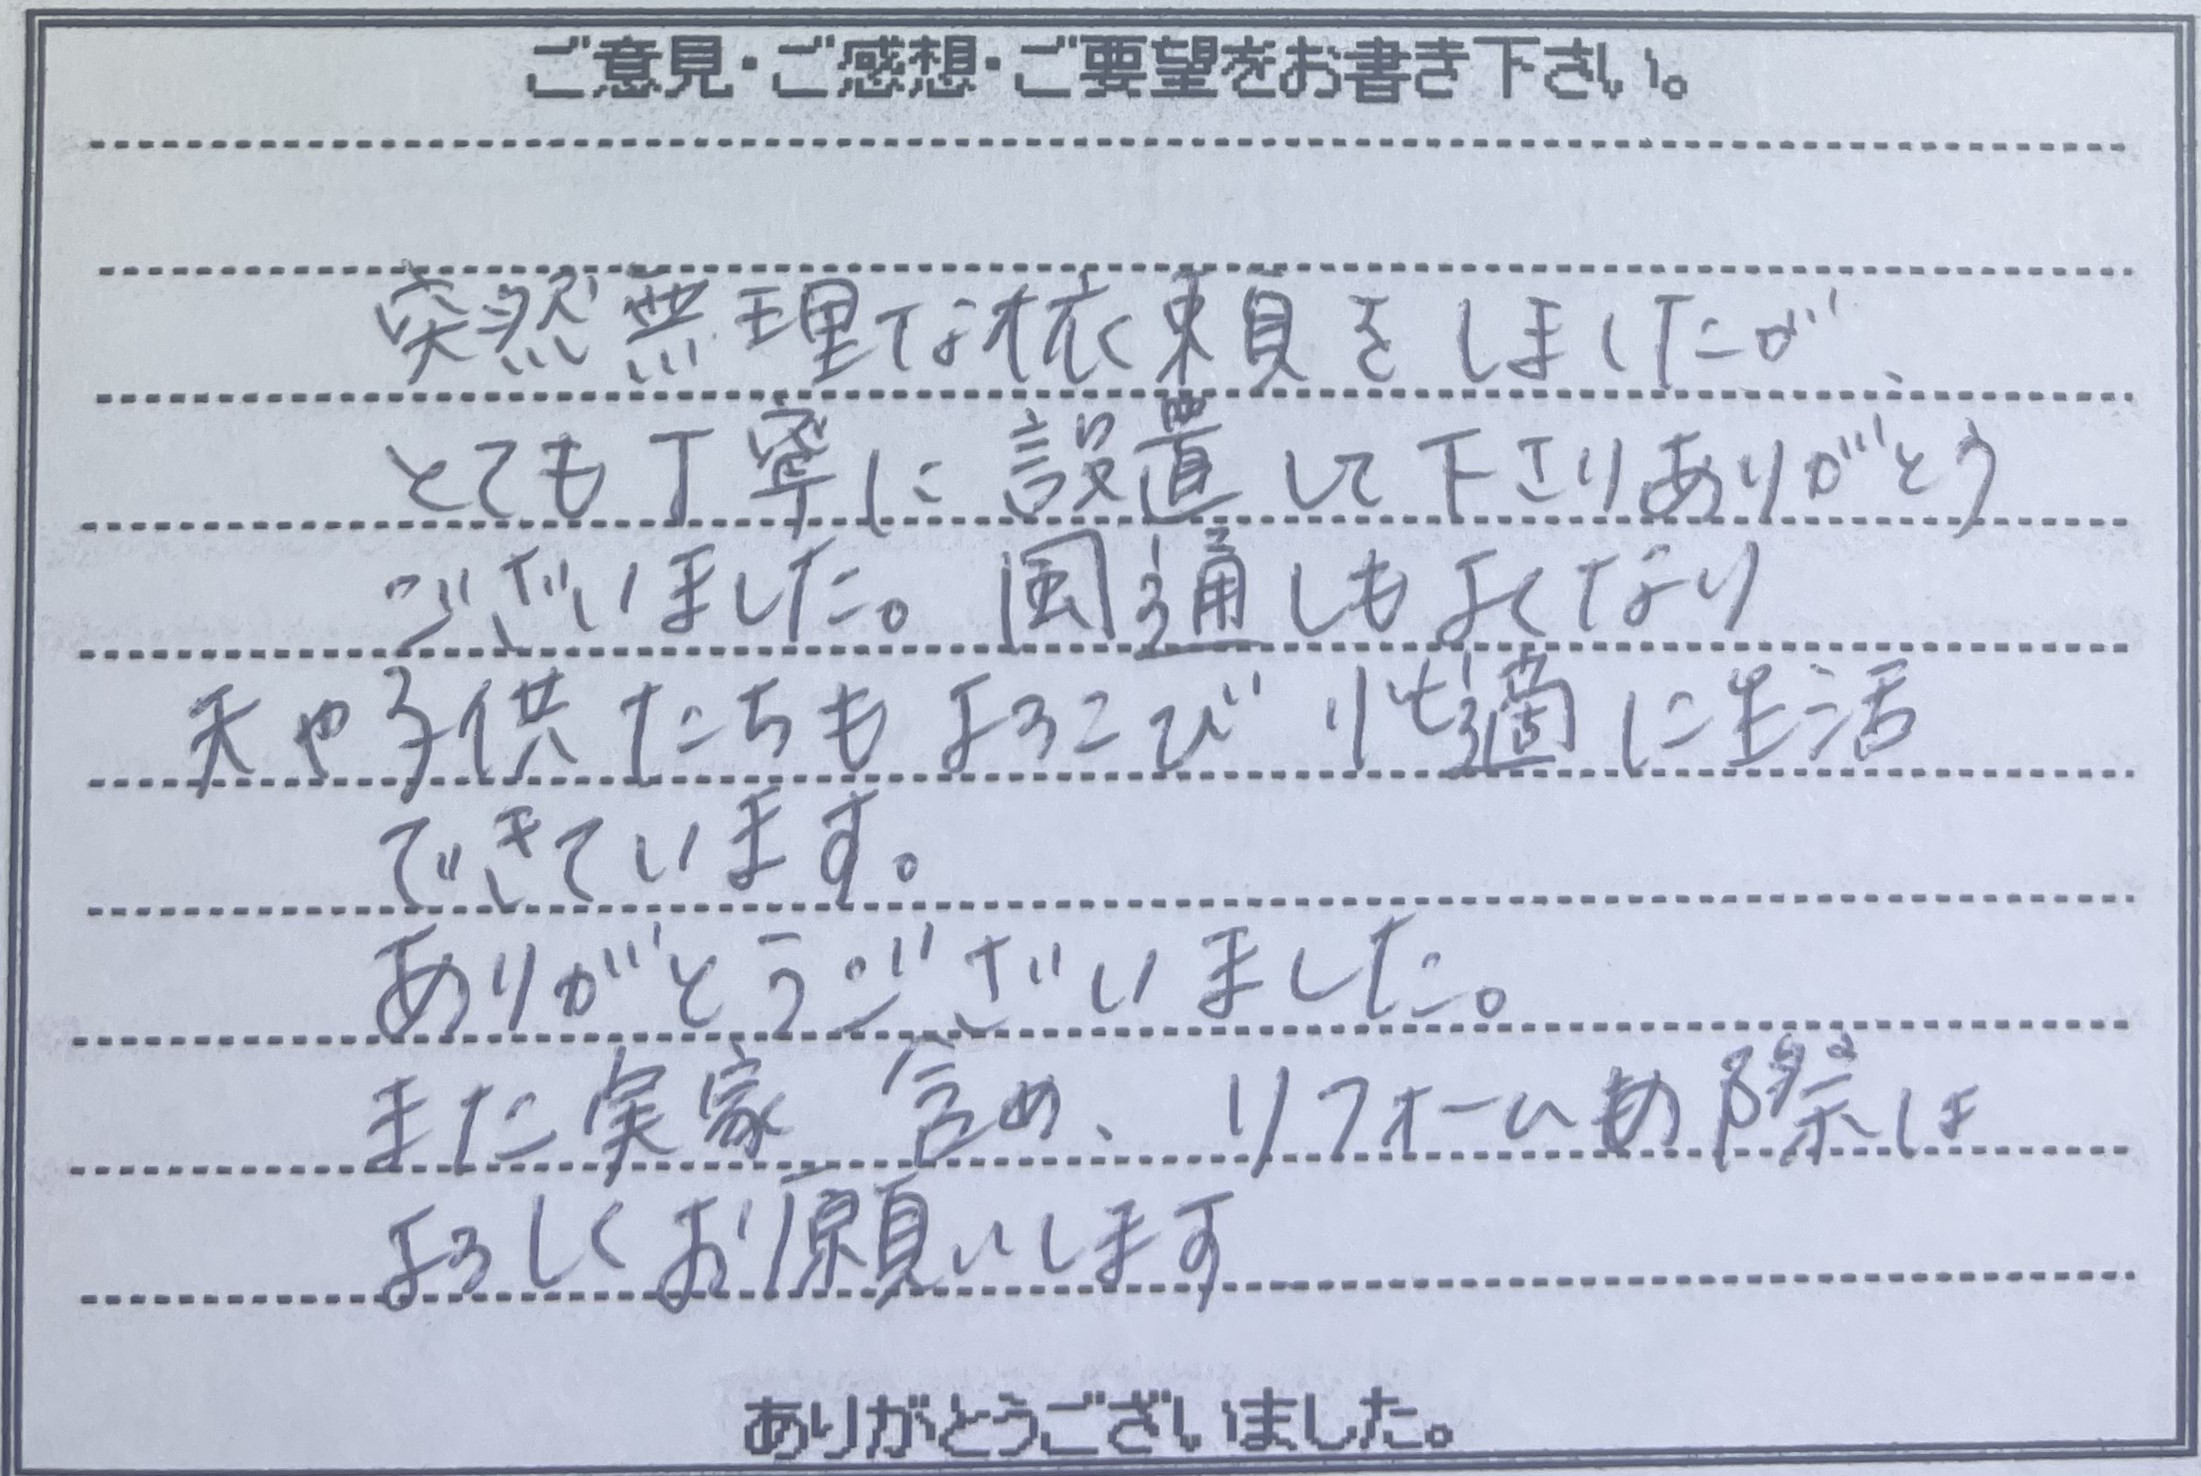 ご意見・ご感想・ご要望をお書き下さい。
突然無理な依頼をしましたが、
とても丁寧に設置して下さりありがとう
ございました。風通しもよくなり
夫や子供たちもよろこび快適に生活
できています。
ありがとうございました。
また実家含め、リフォームの際は
よろしくお願いします
ありがとうございました。